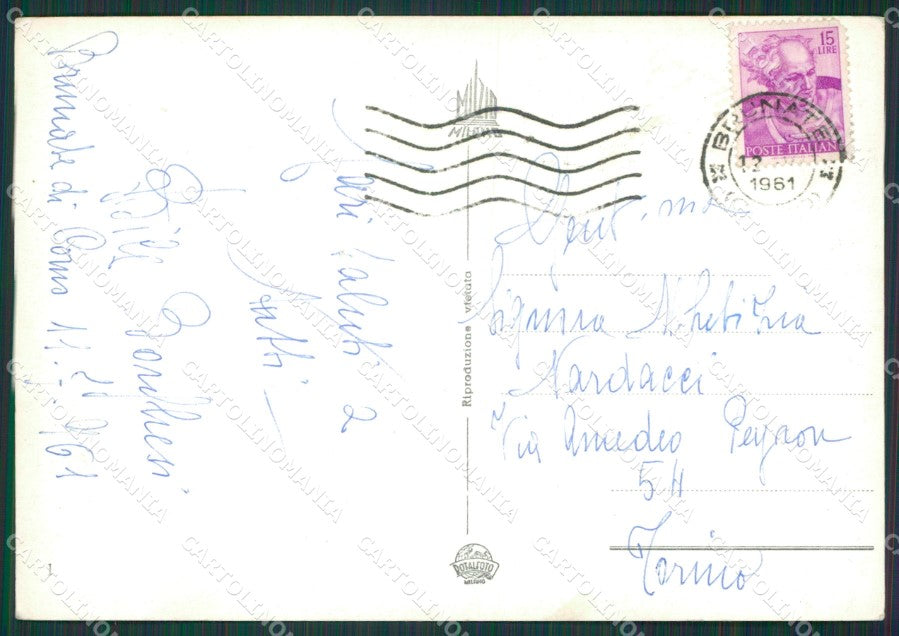 Brunate di Como 11.
61
Cari saluti a
tutti
Gent.ma
Signora
Nardacci
Via Amedeo Peyron
54
Torino
15
LIRE
POSTE ITALIANE
BRUNATE
1961
MILANO
Riproduzione vietata
ROTALFOTO
MILANO
CARTOLINOMANIA